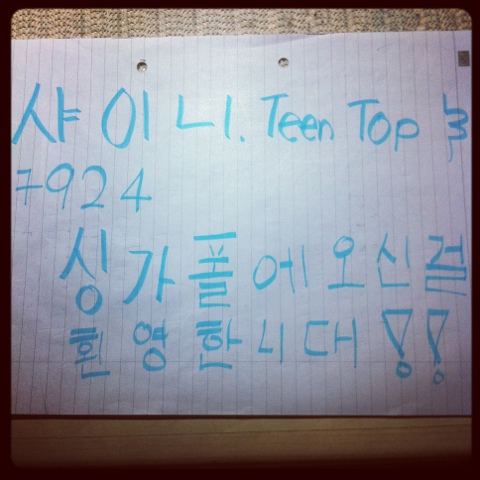 샤이니. Teen Top &
7924
싱가폴에 오신걸
환영합니다!!